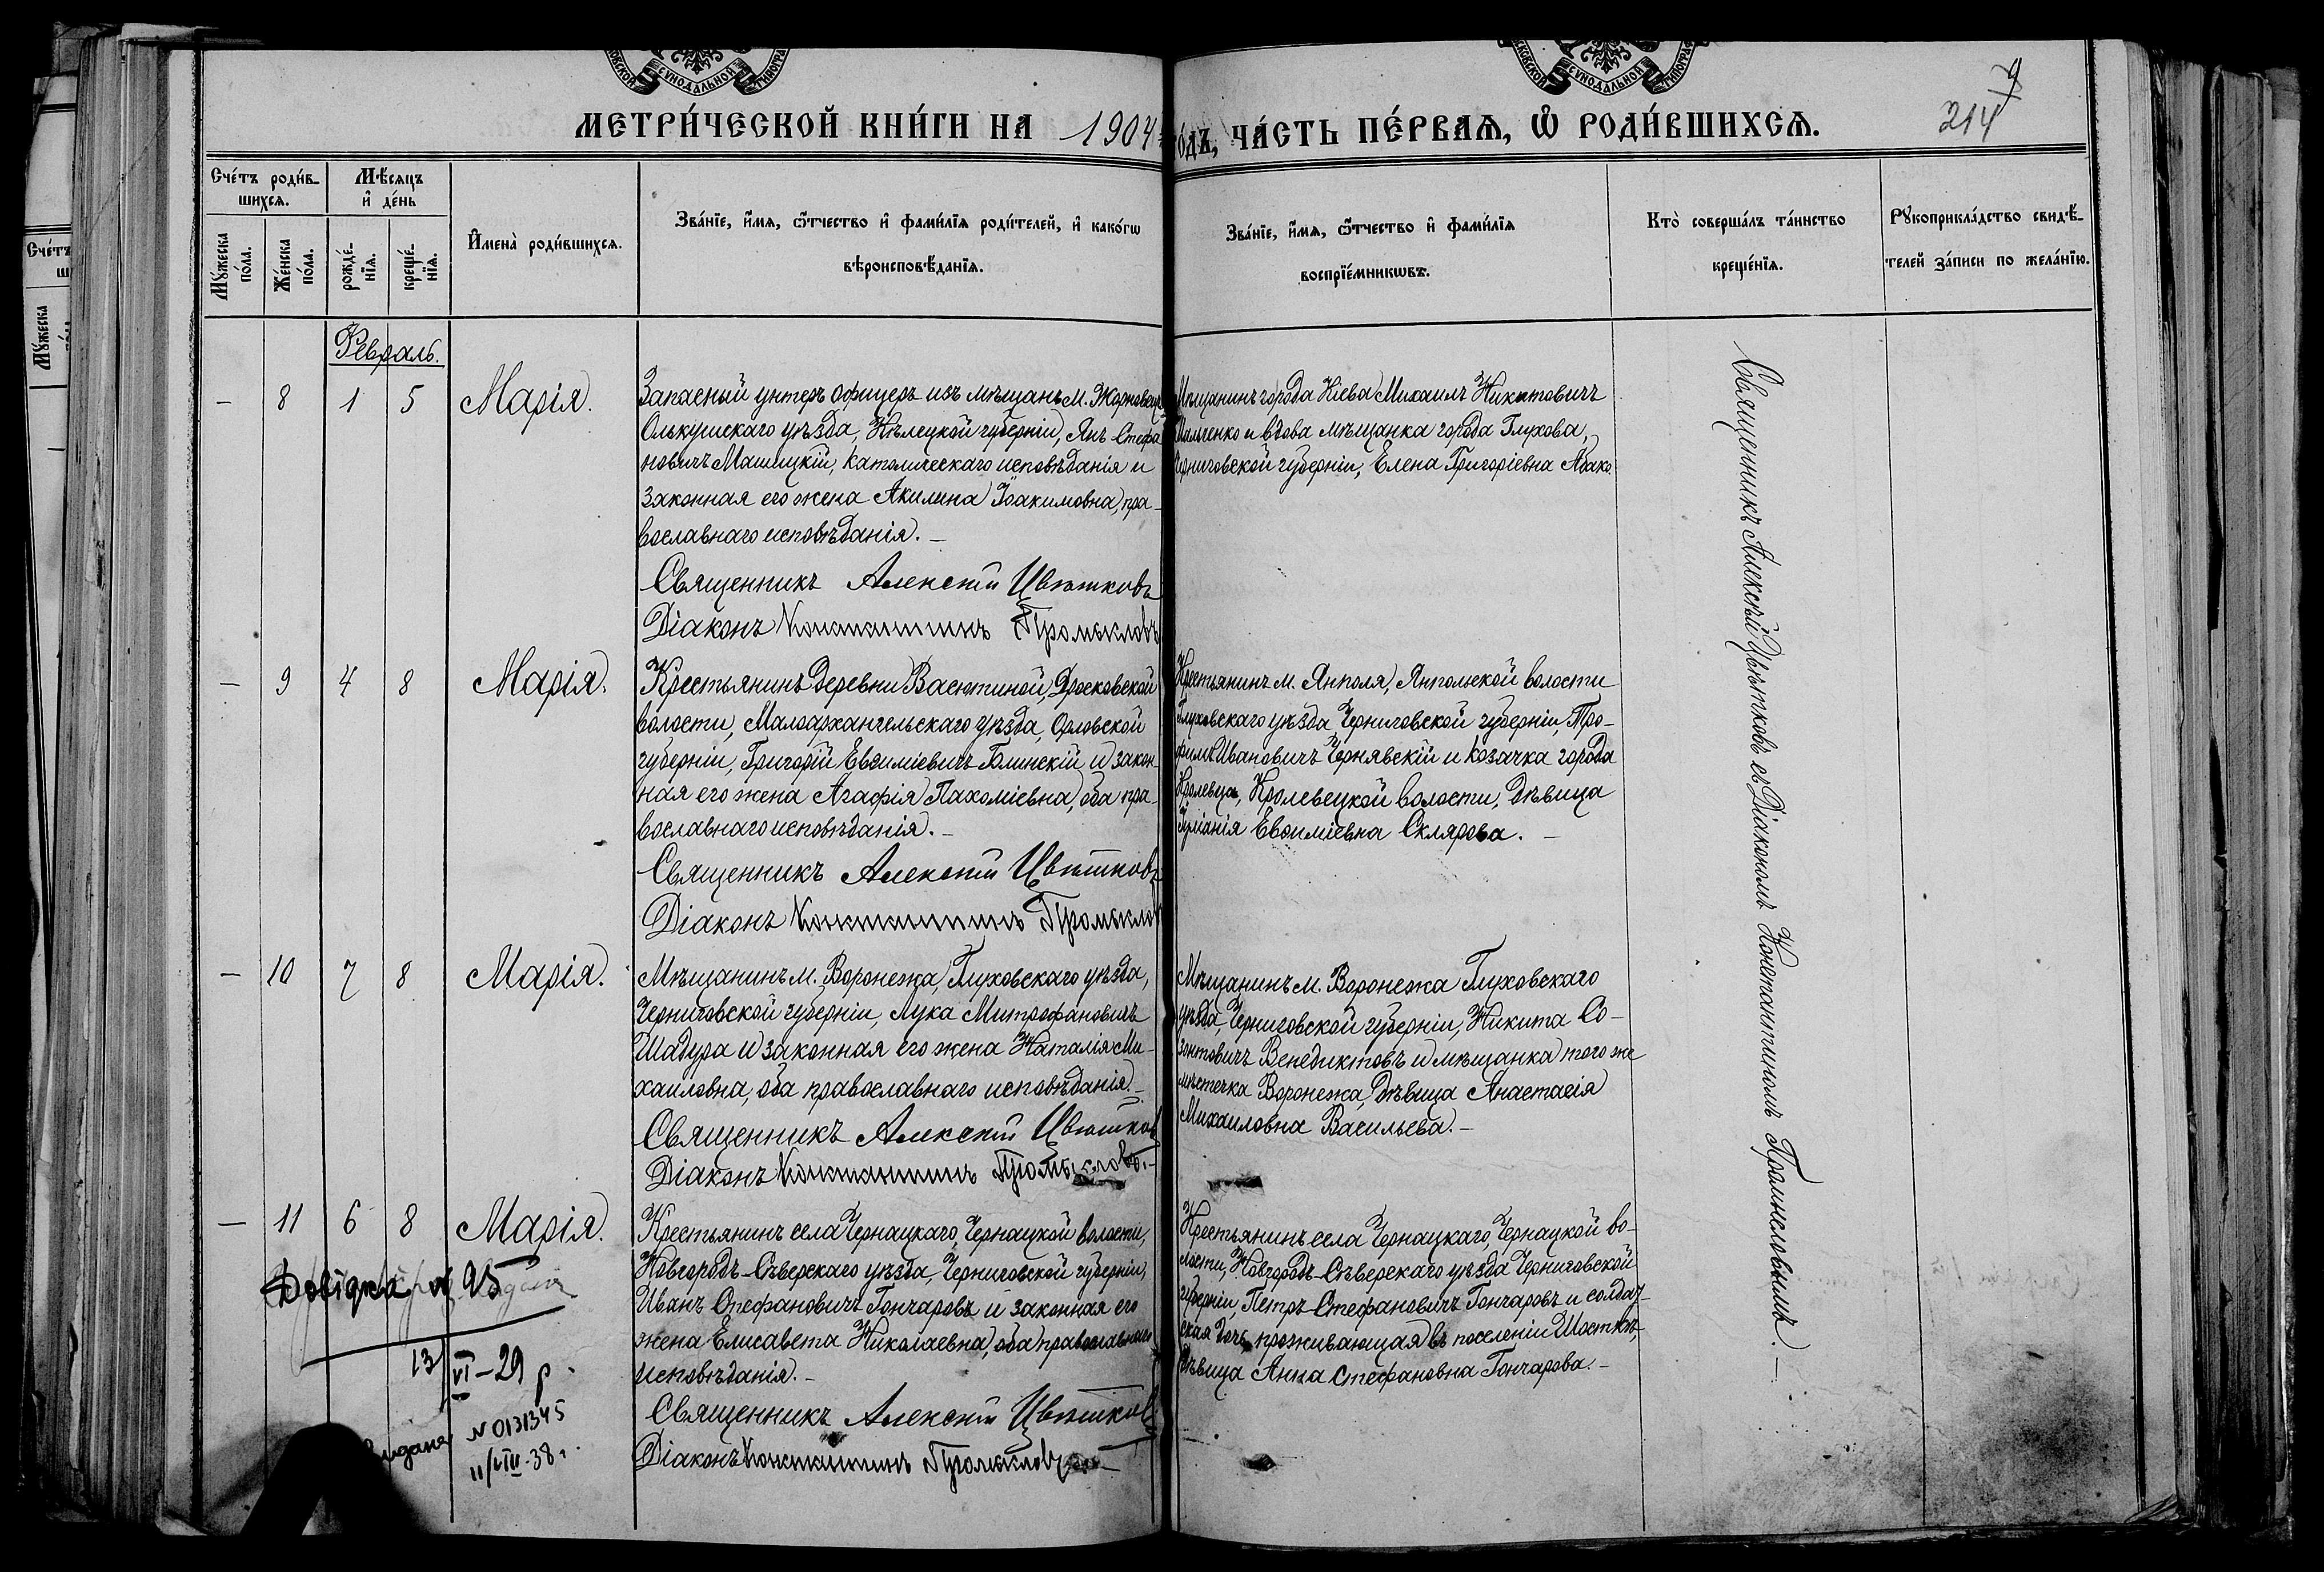 МЕТРИ́ЧЕСКОЙ КНИ́ГИ НА 1904 го́дъ, ЧА́СТЬ ПЕ́РВАѦ, Ѽ РОДИ́ВШИХСѦ.
214
9
Сче́тъ роди́в-
шихсѧ.
Мѣ́сѧцъ
и҆ де́нь
Мꙋ́жеска
по́ла.
Же́нска
по́ла.
рожде́-
нїѧ.
креще́-
нїѧ.
И҆мена̀ роди́вшихсѧ.
Зва́нїе, и҆́мѧ, ѻ҆́тчество и҆ фами́лїѧ роди́телей, и҆ како́гѡ
вѣроисповѣ́данїѧ.
Зва́нїе, и҆́мѧ, ѻ҆́тчество и҆ фами́лїѧ
воспрїе́мникѡвъ.
Кто̀ соверша́лъ та́инство
креще́нїѧ.
Рꙋкоприкла́дство свидѣ́-
телей за́писи по жела́нїю.
Февраль.
– 8 1 5 Марія.
Запасный унтеръ офицеръ изъ мѣщанъ м. Жарновецъ
Олькушскаго уѣзда, Кѣлецкой губерніи, Янъ Стефа
новичъ Машицкій, католическаго исповѣданія и
законная его жена Акилина Іоакимовна, пра-
вославнаго исповѣданія. –
Священникъ Алексѣй Цвѣтковъ
Діаконъ Константинъ Промысловъ
Мѣщанинъ города Кіева Михаилъ Никитовичъ
Мальченко и вдова мѣщанка города Глухова,
Черниговской губерніи, Елена Григоріевна
– 9 4 8 Марія.
Крестьянинъ деревни Васютиной, Дросковской
волости, Малоархангельскаго уѣзда, Орловской
губерніи, Григорій Евѳиміевичъ Голинскій и закон-
ная его жена Агафія Пахоміевна, оба пра-
вославнаго исповѣданія. –
Священникъ Алексѣй Цвѣтковъ
Діаконъ Константинъ Промыслов
Крестьянинъ м. Янполя, Янпольской волости
Глуховскаго уѣзда Черниговской губерніи, Тро-
фимъ Ивановичъ Чернявскій и козачка города
Кролевца, Кролевецкой волости, дѣвица
Іуліанія Евѳиміевна Склярова. –
– 10 7 8 Марія.
Мѣщанинъ м. Воронежа, Глуховскаго уѣзда,
Черниговской губерніи, Лука Митрофановичъ
Шадура и законная его жена Наталія Ми-
хаиловна, оба православнаго исповѣданія. –
Священникъ Алексѣй Цвѣтков
Діаконъ Константинъ Промысловъ. –
Мѣщанинъ м. Воронежа Глуховскаго
уѣзда, Черниговской губерніи, Никита Со-
зонтовичъ Венедиктовъ и мѣщанка того же
мѣстечка Воронежа, дѣвица Анастасія
Михаиловна Васильева. –
– 11 6 8 Марія.
Крестьянинъ села Чернацкаго, Чернацкой волости,
Новгородъ-Сѣверскаго уѣзда, Черниговской губерніи,
Иванъ Стефановичъ Гончаровъ и законная его
жена Елисавета Николаевна, оба православнаго
исповѣданія. –
Священникъ Алексѣй Цвѣтков
Діаконъ Константинъ Промысловъ
Крестьянинъ села Чернацкаго, Чернацкой во-
лости, Новгородъ-Сѣверскаго уѣзда Черниговской
губерніи Петръ Стефановичъ Гончаровъ и солдат-
ская дочь, проживающая въ поселеніи Шосткѣ,
дѣвица Анна Стефановна Гончарова. –
Священникъ Алексѣй Цвѣтковъ съ Діакономъ Константиномъ Промысловымъ. –
Довідка № 95
13/VI–29 р.
видана № 0131345
11/VIII-38 г.
Сче́тъ
Мꙋ́жеска